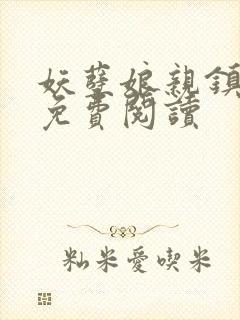 妖孽娘親鎮
免費閱讀
籼米愛喫米